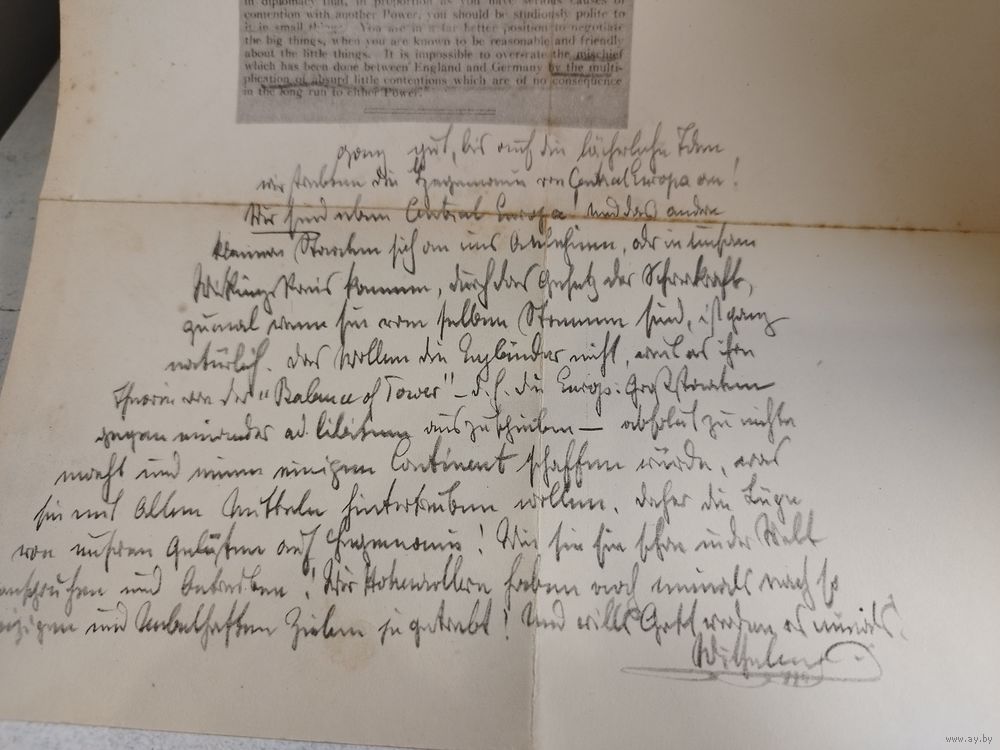 in diplomacy that, in proportion as you have serious causes of
contention with another Power, you should be studiously polite to
it in small things. You are in a far better position to negotiate
the big things, when you are known to be reasonable and friendly
about the little things. It is impossible to overstate the mischief
which has been done between England and Germany by the multi-
plication of absurd little contentions which are of no consequence
in the long run to either Power."
ganz gut, bis auf die lächerliche Idee
wir strebten die Hegemonie von Central Europa an!
Wir sind eben Central Europa! und das andere
kleinere Staaten sich an uns anlehnen, oder in unseren
Wirkungskreis kommen, durch das Gesetz der Schwerkraft,
zumal wenn sie vom selben Stamme sind, ist ganz
natürlich. Das wollen die Engländer nicht, weil es ihre
Theorie von der "Balance of Power" – d.h. die Europ: Großstaaten
gegen einander ad libitum auszuspielen – absolut zu nichte
macht und einen einigen Continent schaffen würde, was
sie mit allen Mitteln hintertreiben wollen. Daher die Lüge
von unseren Gelüsten auf Hegemonie! Wie sie sie schon in der Welt
und Antreiben! Wir Hohenzollern haben noch niemals nach so
und nebelhaften Zielen gestrebt! Und wills Gott werden es niemals.
Wilhelm
www.ay.by